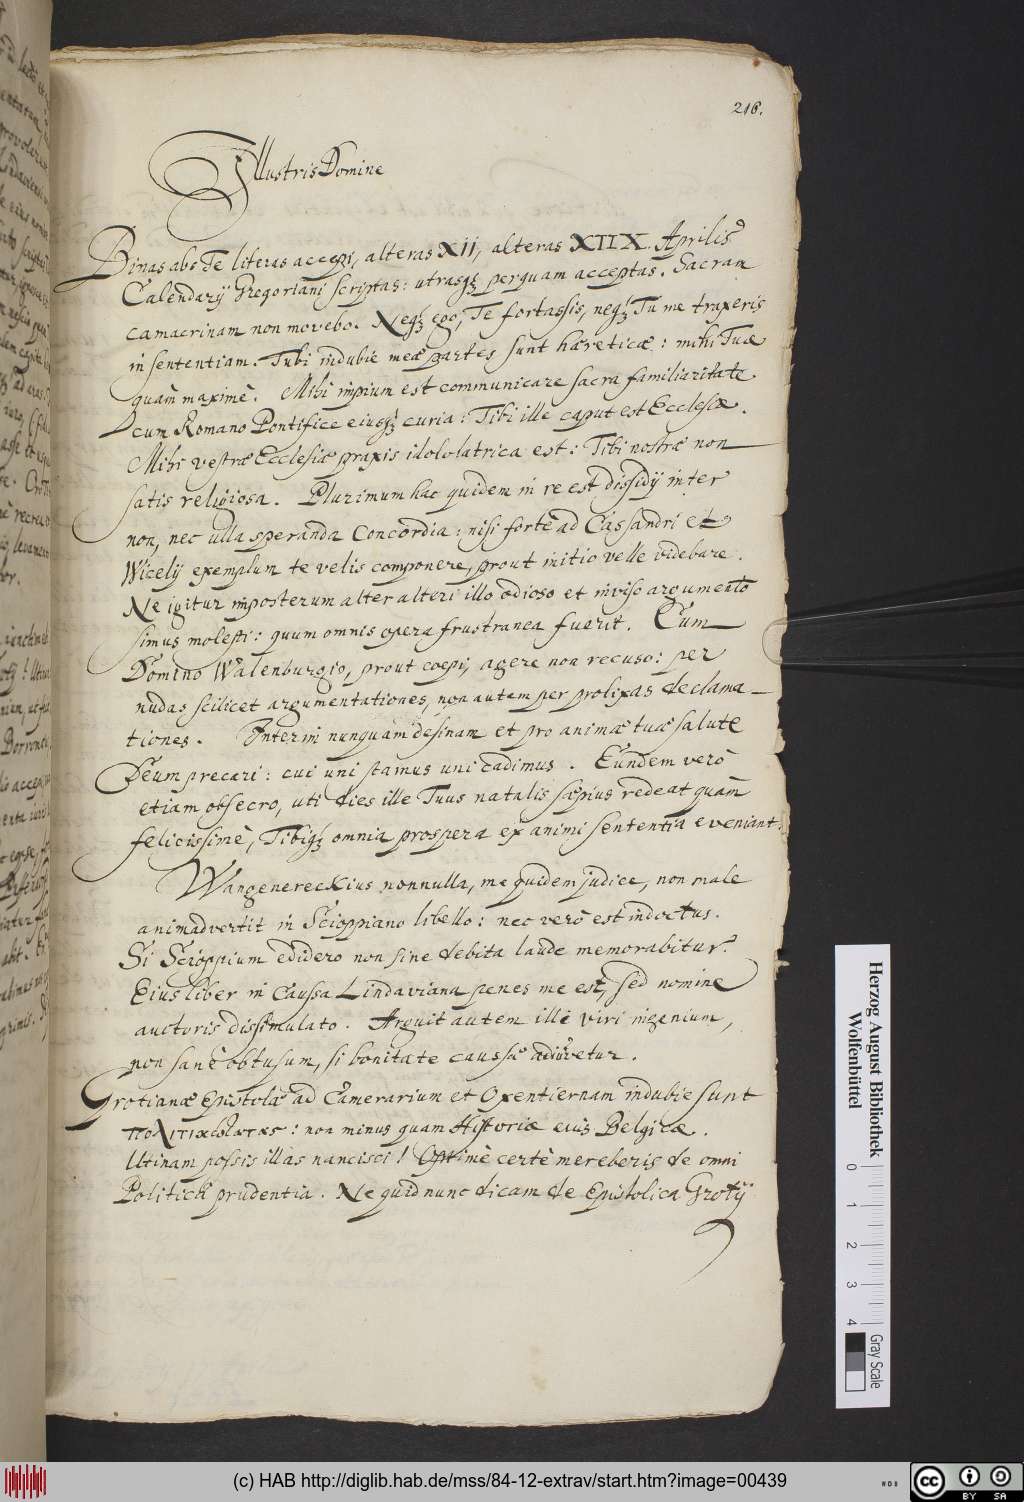 216.
Illustris Domine
Binas abs Te literas accepi, alteras XII, alteras XIIX. Aprilis
Calendarij Gregoriani scriptas: utrasq; perquam acceptas. Sacram
camarinam non movebo. Neq; ego, Te fortassis, neq; Tu me traxeris
in sententiam. Tibi indubie meæ partes sunt hæreticæ: mihi Tuæ
quàm maximè. Mihi impium est communicare sacra familiaritate
cum Romano Pontifice eiusq; curia: Tibi ille caput est Ecclesiæ.
Mihi vestræ Ecclesiæ praxis idololatrica est: Tibi nostræ non
satis religiosa. Plurimum hac quidem in re est dissidij inter
non, nec ulla speranda Concordia: nisi fortè ad Cassandri et
Wicelij exemplum te velis componere, prout initio velle videbare.
Ne igitur imposterum alter alteri illo odioso et inviso argumento
simus molesti: quum omnis opera frustranea fuerit. Cum
Domino Walenburgio, prout coepi, agere non recuso: per
nudas scilicet argumentationes, non autem per prolixas declama-
tiones. Interim nunquàm desinam et pro animæ tuæ salute
Deum precari: cui uni stamus uni cadimus. Eundem verò
etiam obsecro, uti dies ille Tuus natalis sæpius redeat quàm
felicissimè, Tibiq; omnia prospera ex animi sententia eveniant.
Wangenereckius nonnulla, me quidem judice, non male
animadvertit in Scioppiano libello: nec verò est indoctus.
Si Scioppium edidero non sine debita laude memorabitur.
Eius liber in Caussa Lindaviana penes me est, sed nomine
auctoris dissimulato. Arguit autem ille viri ingenium,
non sanè obtusum, si bonitate caussæ adiuvetur.
Grotianæ Epistolæ ad Camerarium et Oxentiernam indubie sunt
: non minus quam Historiæ eius Belgicæ.
Utinam possis illas nancisci! Optimè certè mereberis de omni
Politica prudentia. Ne quid nunc dicam de Epistolica Grotij
Herzog August Bibliothek
Wolfenbüttel
0 1 2 3 4
Gray Scale
(c) HAB http://diglib.hab.de/mss/84-12-extrav/start.htm?image=00439
cc BY SA